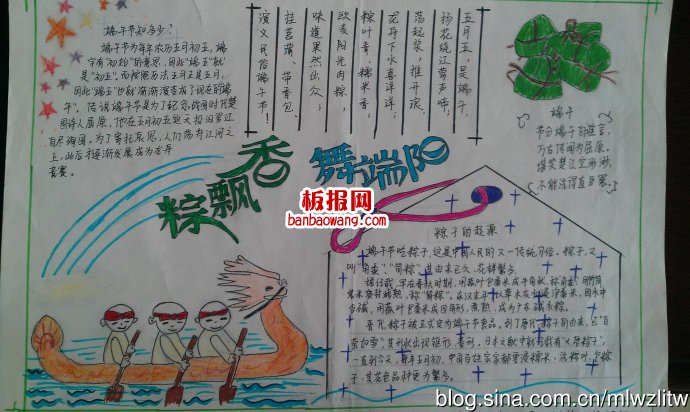 端午节知多少?
端午节为每年农历五月初五,端
午有"初始"的意思,因此"端五"就
是"初五"。而按照历法五月正是五月,
因此"端五"也就渐渐演变成了现在的"端
午"。传说端午节是为了纪念战国时代楚
国诗人屈原,他在五月初五这天投汨罗江
自尽殉国,为了寄托哀思,人们荡舟江河之
上,此后才逐渐发展成为龙舟
竞赛。
五月五,是端午。
扬花绕江草声啼;
荡起桨,推开浪,
龙舟下水喜洋洋;
粽叶青,糯米香;
欧麦阳光肉粽,
味道果然出众;
挂菖蒲、带香包,
演义民俗端午节!
端午
节分端午自谁言,
万古传闻为屈原。
堪笑楚江空渺渺,
不能洗得直臣冤。
粽飘香
舞端阳
板报网
banbaowang.com
粽子的起源
端午节吃粽子,这是中国人民的又一传统习俗。粽子,又
叫"角黍"、"筒粽"。其由来已久,花样繁多。
据记载,早在春秋时期,用菰叶包黍米成牛角状,称"角黍";用竹筒
装米密封烤熟,称"筒粽"。东汉末年,以草木灰水浸泡黍米,因水中
含碱,用菰叶包黍米成四角形,煮熟,成为广东碱水粽。
晋代,粽子被正式定为端午节食品。
一直到今天,每年五月初,中国百姓家家都要浸糯米、洗粽叶、包粽
子,其花色品种更为繁多。
blog.sina.com.cn/mlwzlitw